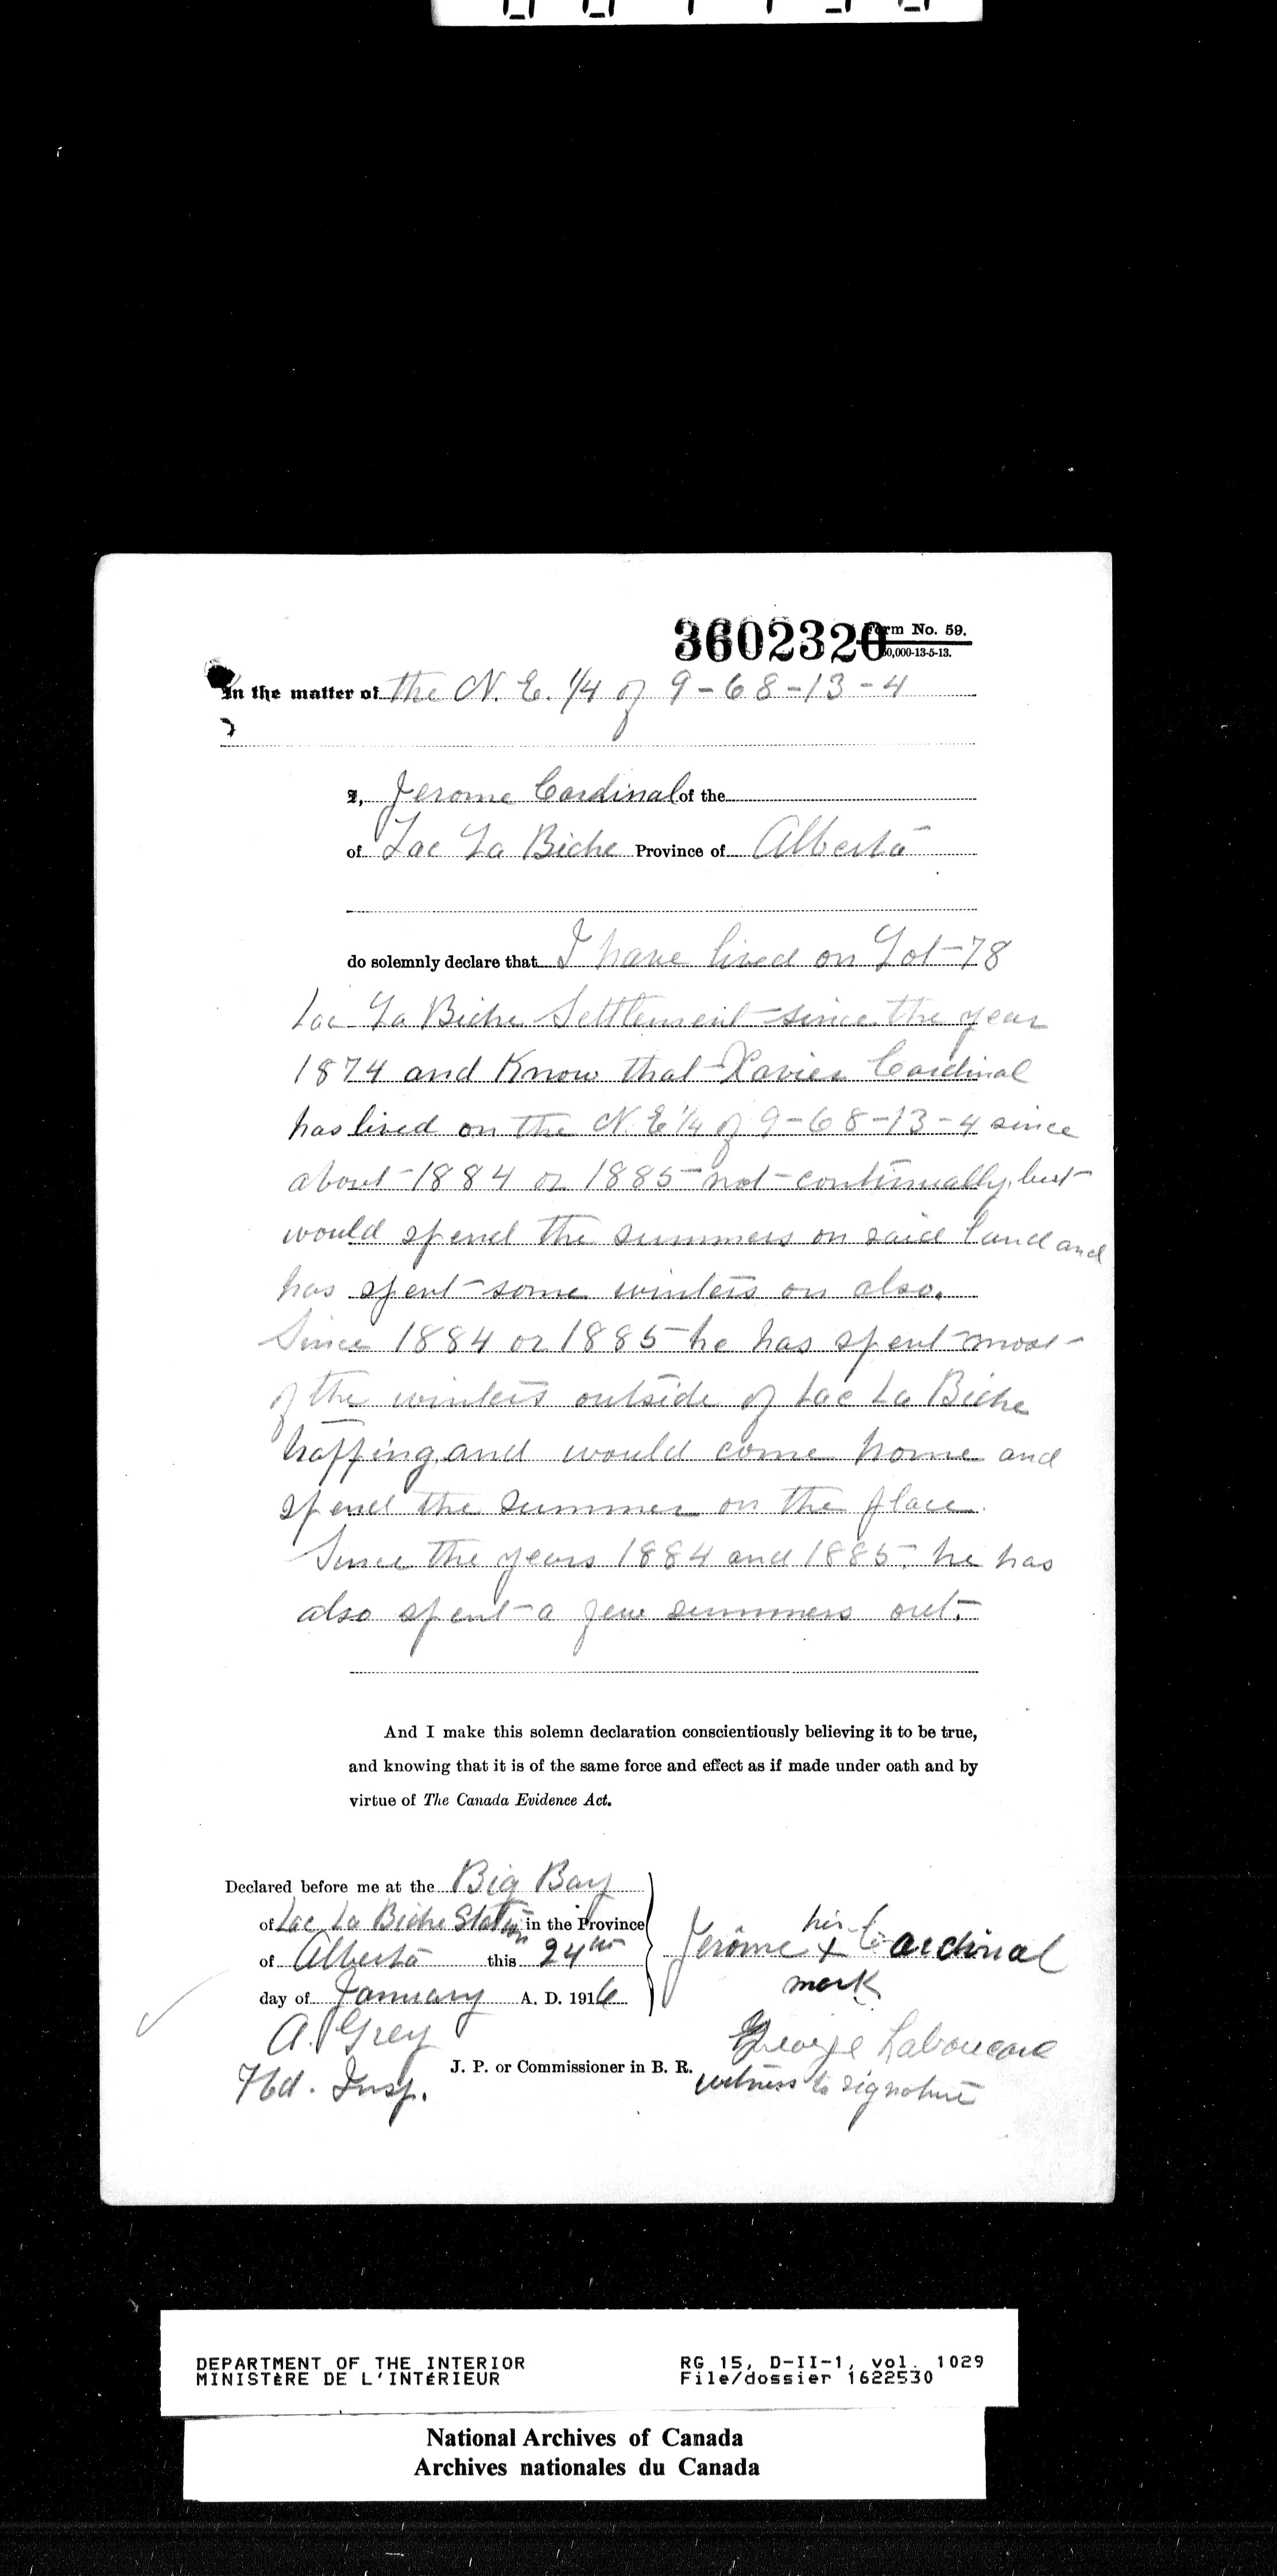 3602320
Form No. 59.
50,000-13-5-13.
In the matter of the N. E. 1/4 of 9-68-13-4
I, Jerome Cardinal of the
of Lac La Biche Province of Alberta
do solemnly declare that I have lived on Lot 78
Lac La Biche Settlement since the year
1874 and Know that Xavier Cardinal
has lived on the N. E 1/4 of 9-68-13-4 since
about 1884 or 1885 not continually, but
would spend the summers on said land and
has spent some winters on also.
Since 1884 or 1885 he has spent most
of the winters outside of Lac La Biche
trapping, and would come home and
spend the summer on the place.
Since the years 1884 and 1885, he has
also spent a few summers out.
And I make this solemn declaration conscientiously believing it to be true,
and knowing that it is of the same force and effect as if made under oath and by
virtue of The Canada Evidence Act.
Declared before me at the Big Bay
of Lac La Biche Station in the Province
of Alberta this 24th
day of January A. D. 1916
A. Grey
Hd. Insp.
J. P. or Commissioner in B. R.
his
Jerome x Cardinal
mark
George Laboucane
witness to signature
DEPARTMENT OF THE INTERIOR
MINISTÈRE DE L'INTÉRIEUR
RG 15, D-II-1, vol. 1029
File/dossier 1622530
National Archives of Canada
Archives nationales du Canada